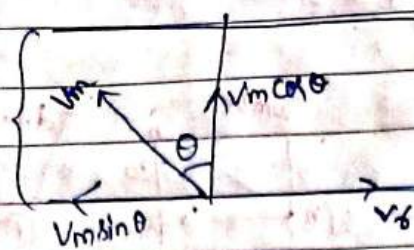 Vm
Vm cos θ
θ
Vm sin θ